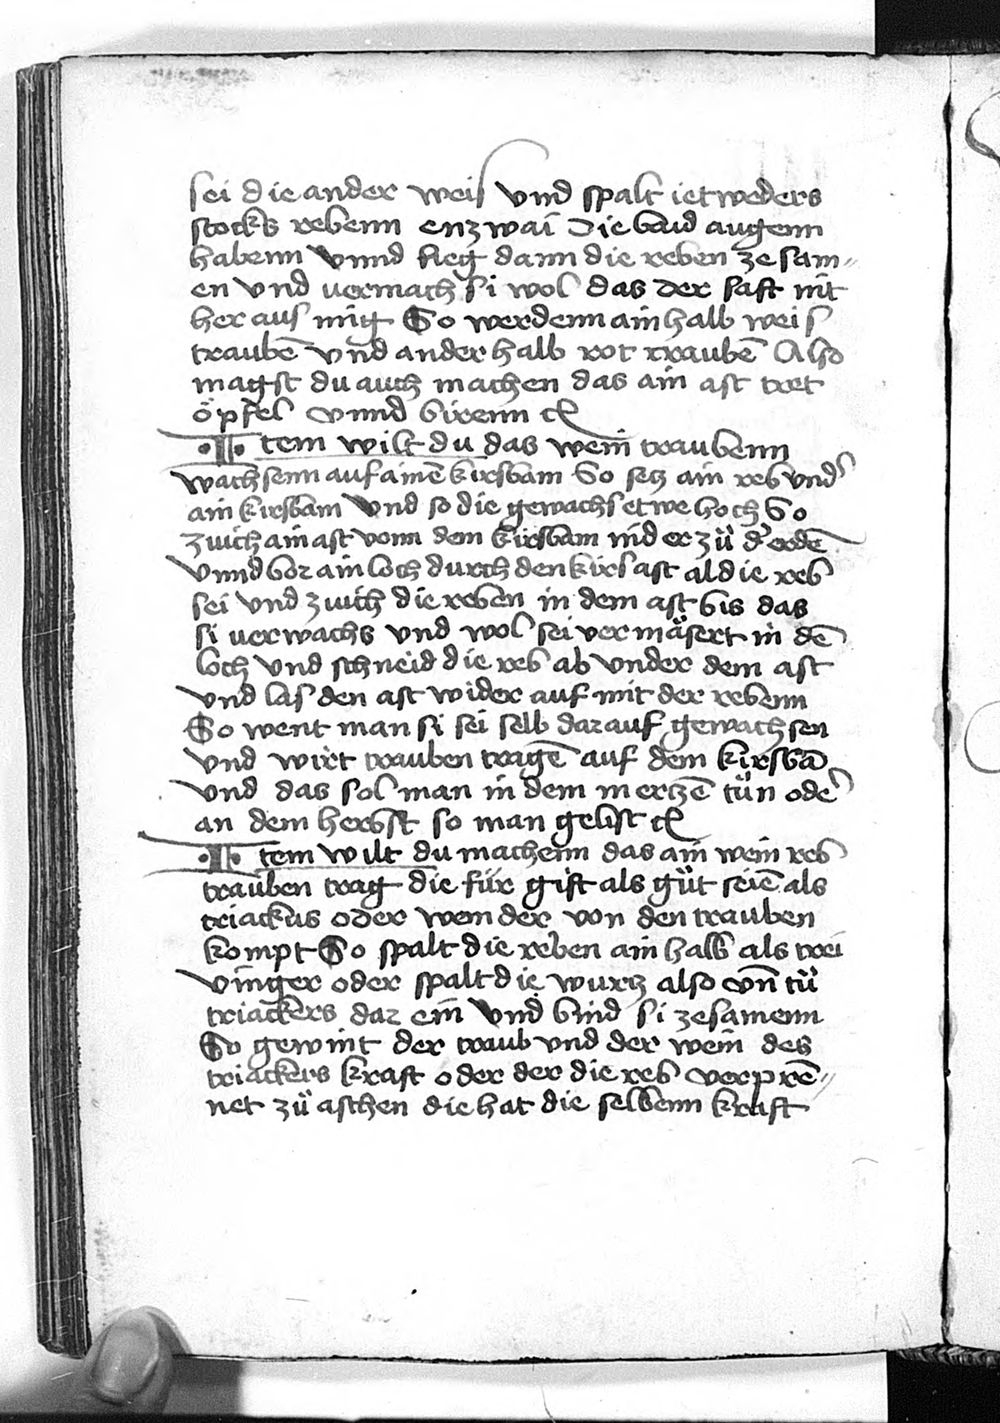 sei die ander weis vnd spalt ietweders
stocks rebenn enzwai Die baid augenn
habenn vnnd fueg dann die reben ze sam⸗
en vnd uermach si wol das der saft nit
her aus mug So werdenn ain halb weis
traubē vnd ander halb rot traubē Also
magst du auch machen das ain ast tret
öpfel vnnd birenn ꝛc
Item wilt du das wein traubenn
wachsenn auf ainē kirsbam So setz ain reb vnd
ain kirsbam vnd so die gewachs etwe hoch So
zuich ain ast vonn dem kirsbam nider zů dʼ erdē
vnnd bor ain loch durch den kirs ast al die reb
sei vnd zuich die reben in dem ast bis das
si uerwachs vnd wol sei vermäsert in dē
loch vnd schneid die reb ab vnder dem ast
vnd las den ast wider auf mit der rebenn
So went man si sei selb darauf gewachsen
vnd wirt trauben tragē auf dem kirsbā
vnd das sol man in dem mertzē tůn odeʼ
an dem herbst so man gelist ꝛc
Item wilt du machenn das ain wein reb
trauben trag die für gift als gůt seiē als
triackus oder wein der von den trauben
kompt So spalt die reben ain halb als trei
vinger oder spalt die wurtz also vn̄ tů
triackers dar ein vnd bind si zesamenn
So gewint der traub vnd der wein des
triackers kraft oder der die reb verprē⸗
net zů aschen die hat die selbenn kraft